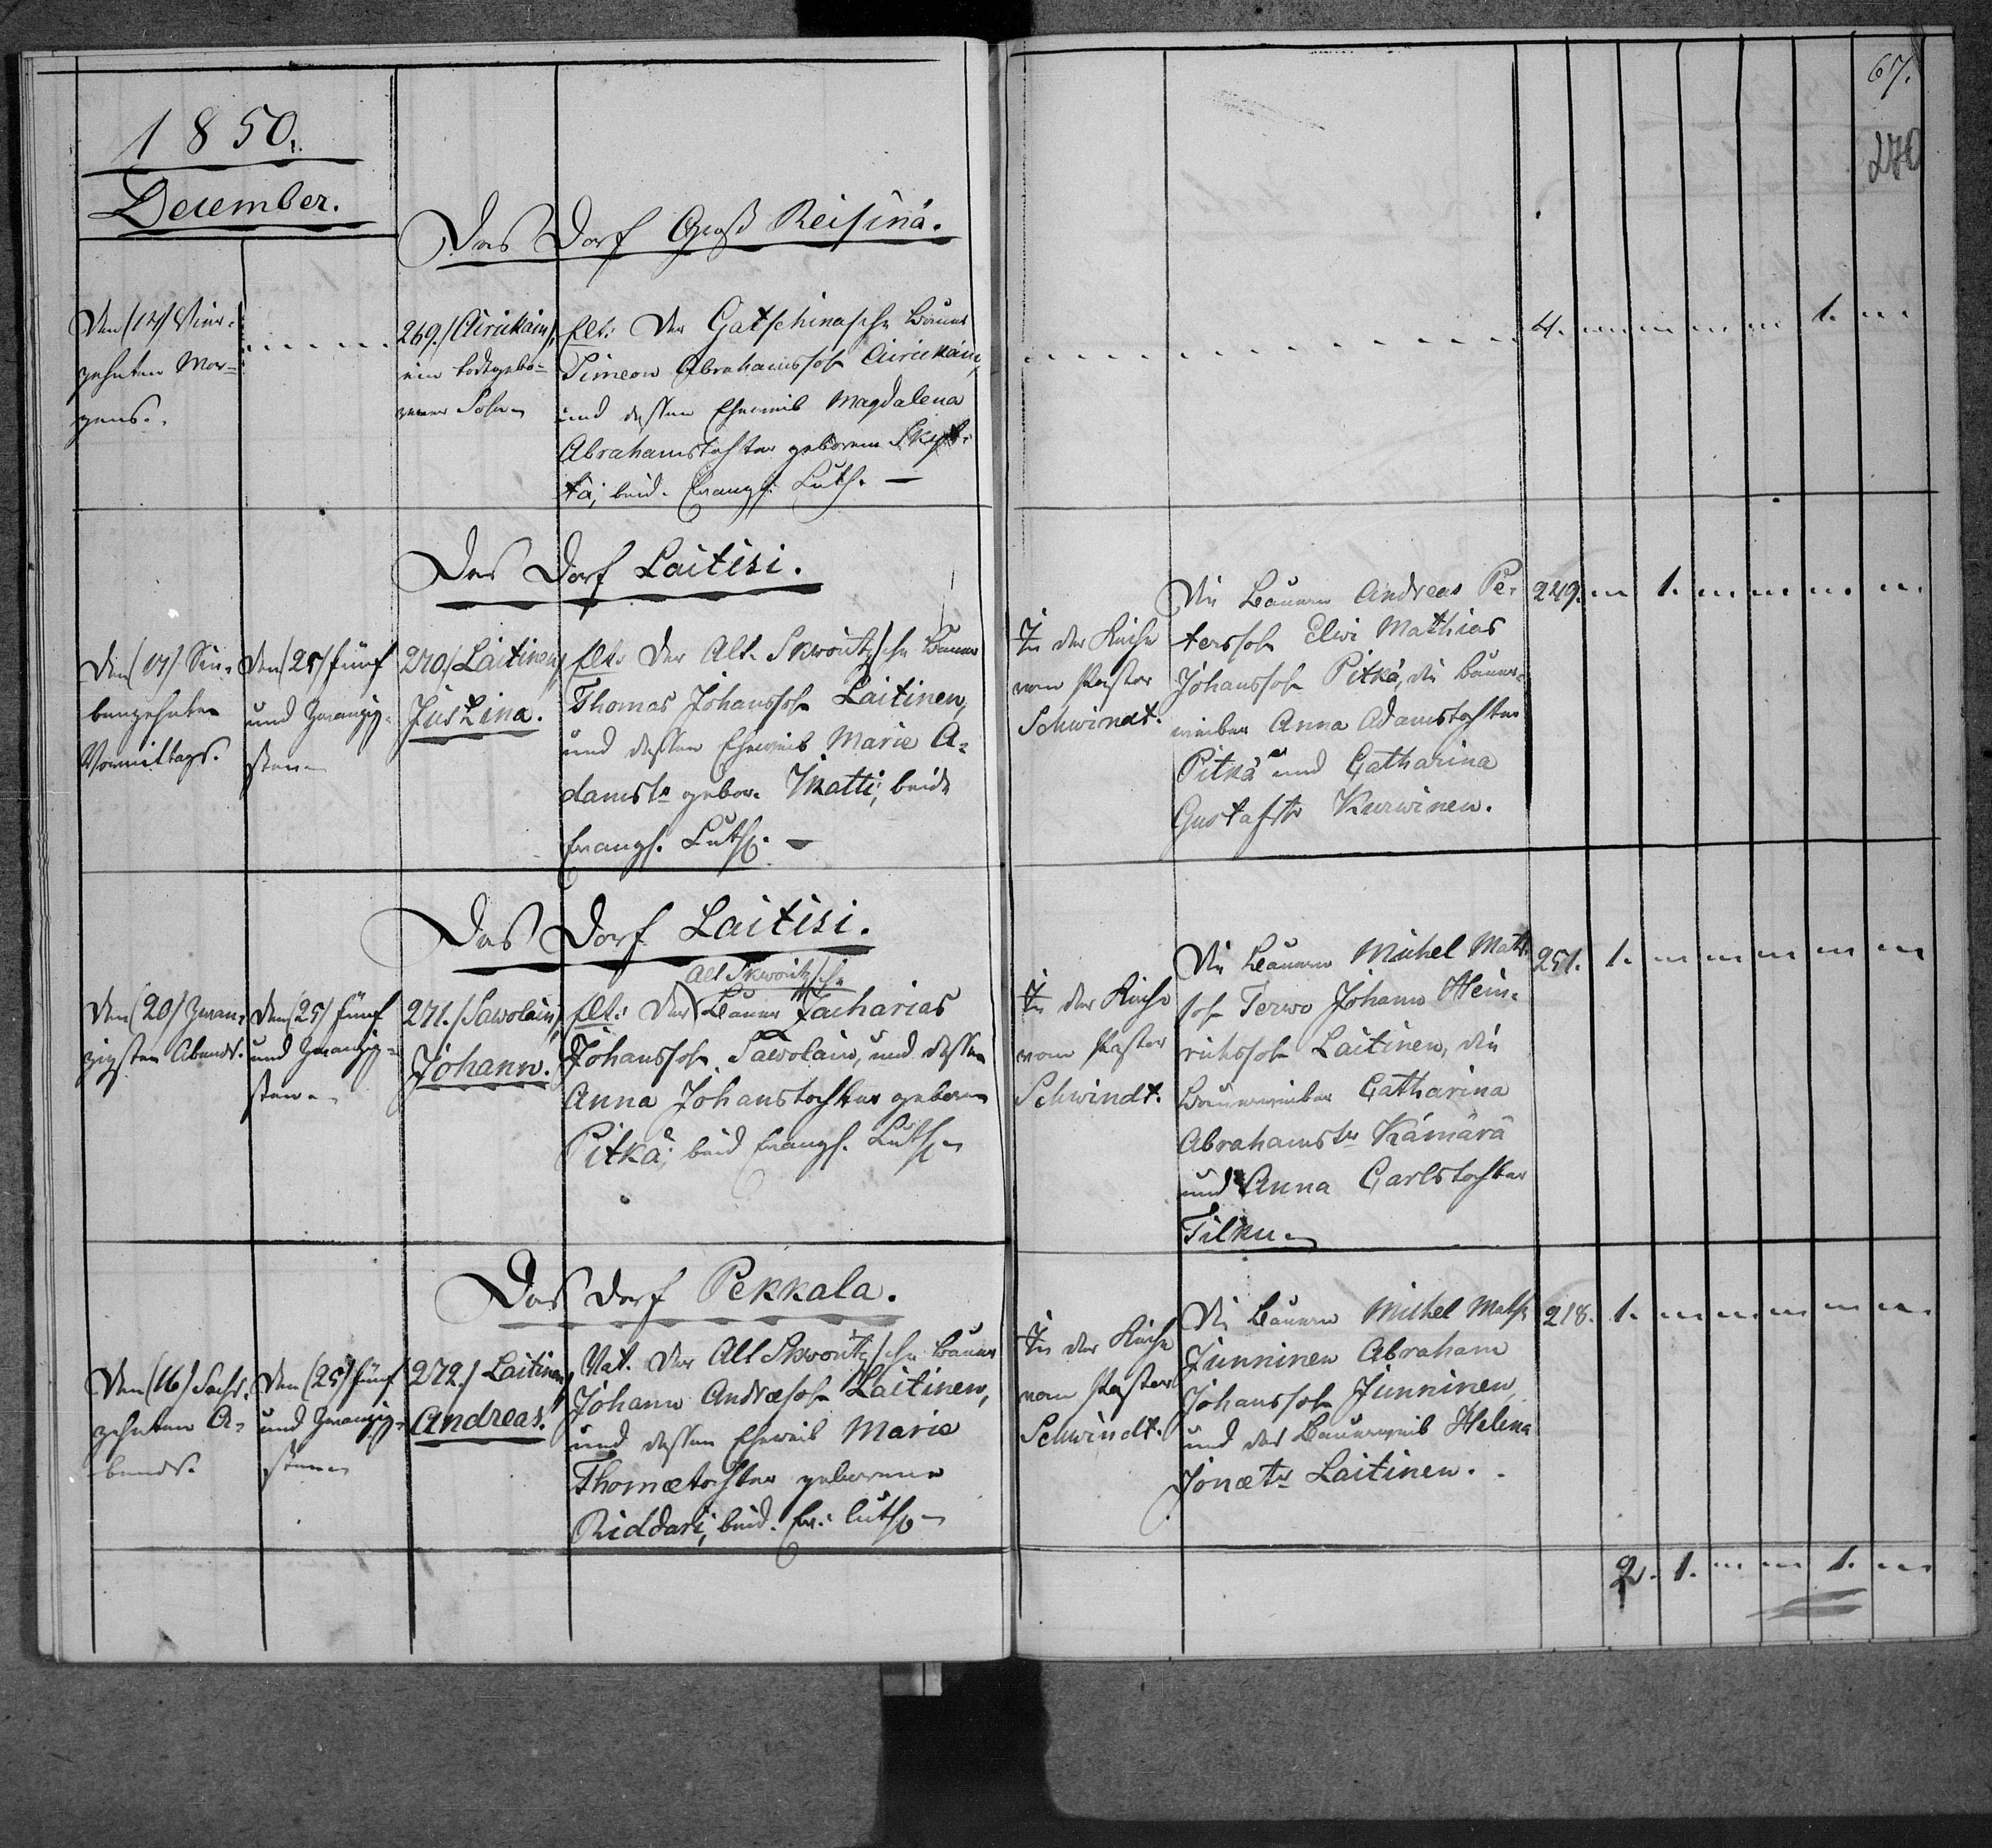 67.
270
1850.
December.
Das Dorf Groß Reisinä.
Den (14) Vier-
zehnten Mor-
gens.
269./ Airikain,
ein todtgebo-
rener Sohn
Elt: Der Gatschinasche Bauer
Simeon Abrahamssoh Airikain,
und dessen Eheweib Magdalena
Abrahamstochter geborene Skyt-
tä, beid. Evangl: Luth. —
4. 1.
Das Dorf Laitisi.
Den (17) Sie-
benzehnten
Vormittags.
Den (25) fünf
und zwanzig-
sten
270./ Laitinen,
Justina.
Elt. Der Alt. Skworitzsche Bauer
Thomas Johanssoh Laitinen,
und dessen Eheweib Marie A-
damst. gebor. Matti, beide
Evangl. Luth. —
In der Kirche
vom Pastor
Schwindt.
Die Bauern Andreas Pe-
terssoh Elwi Mathias
Johanssoh Pitkä, die Bauer-
weiber Anna Adamstochter
Pitkä und Catharina
Gustafstr Kurwinen.
249. 1.
Das Dorf Laitisi.
Den (20) zwan-
zigsten Abends.
Den (25) fünf
und zwanzig-
sten
271./ Sawolain,
Johann.
Alt Skworitzsche
Elt: Der Bauer Zacharias
Johanssoh Sawolain, und dessen
Anna Johanstochter geboren
Pitkä, beid Evangl. Luth.
In der Kirche
vom Pastor
Schwindt.
Die Bauern Michel Math.
soh Terwo Johann Hein-
richssoh Laitinen, die
Bauerweiber Catharina
Abrahamstr Kämärä
und Anna Carlstochter
Tilku
251. 1.
Das Dorf Pekkala.
Den (16) Sechs-
zehnten A-
bends.
Den (25) fünf
und zwanzig-
sten
272./ Laitinen,
Andreas.
Vat. Der Alt Skworitzsche Bauer
Johann Andræsoh Laitinen,
und dessen Eheweib Marie
Thomætochter geborene
Riddari, beid. Ev: luth
In der Kirche
vom Pastor
Schwindt.
Die Bauern Michel Maths
Junninen Abraham
Johanssoh Junninen,
und das Bauerweib Helena
Jonætr Laitinen.
218. 1.
2. 1. 1.